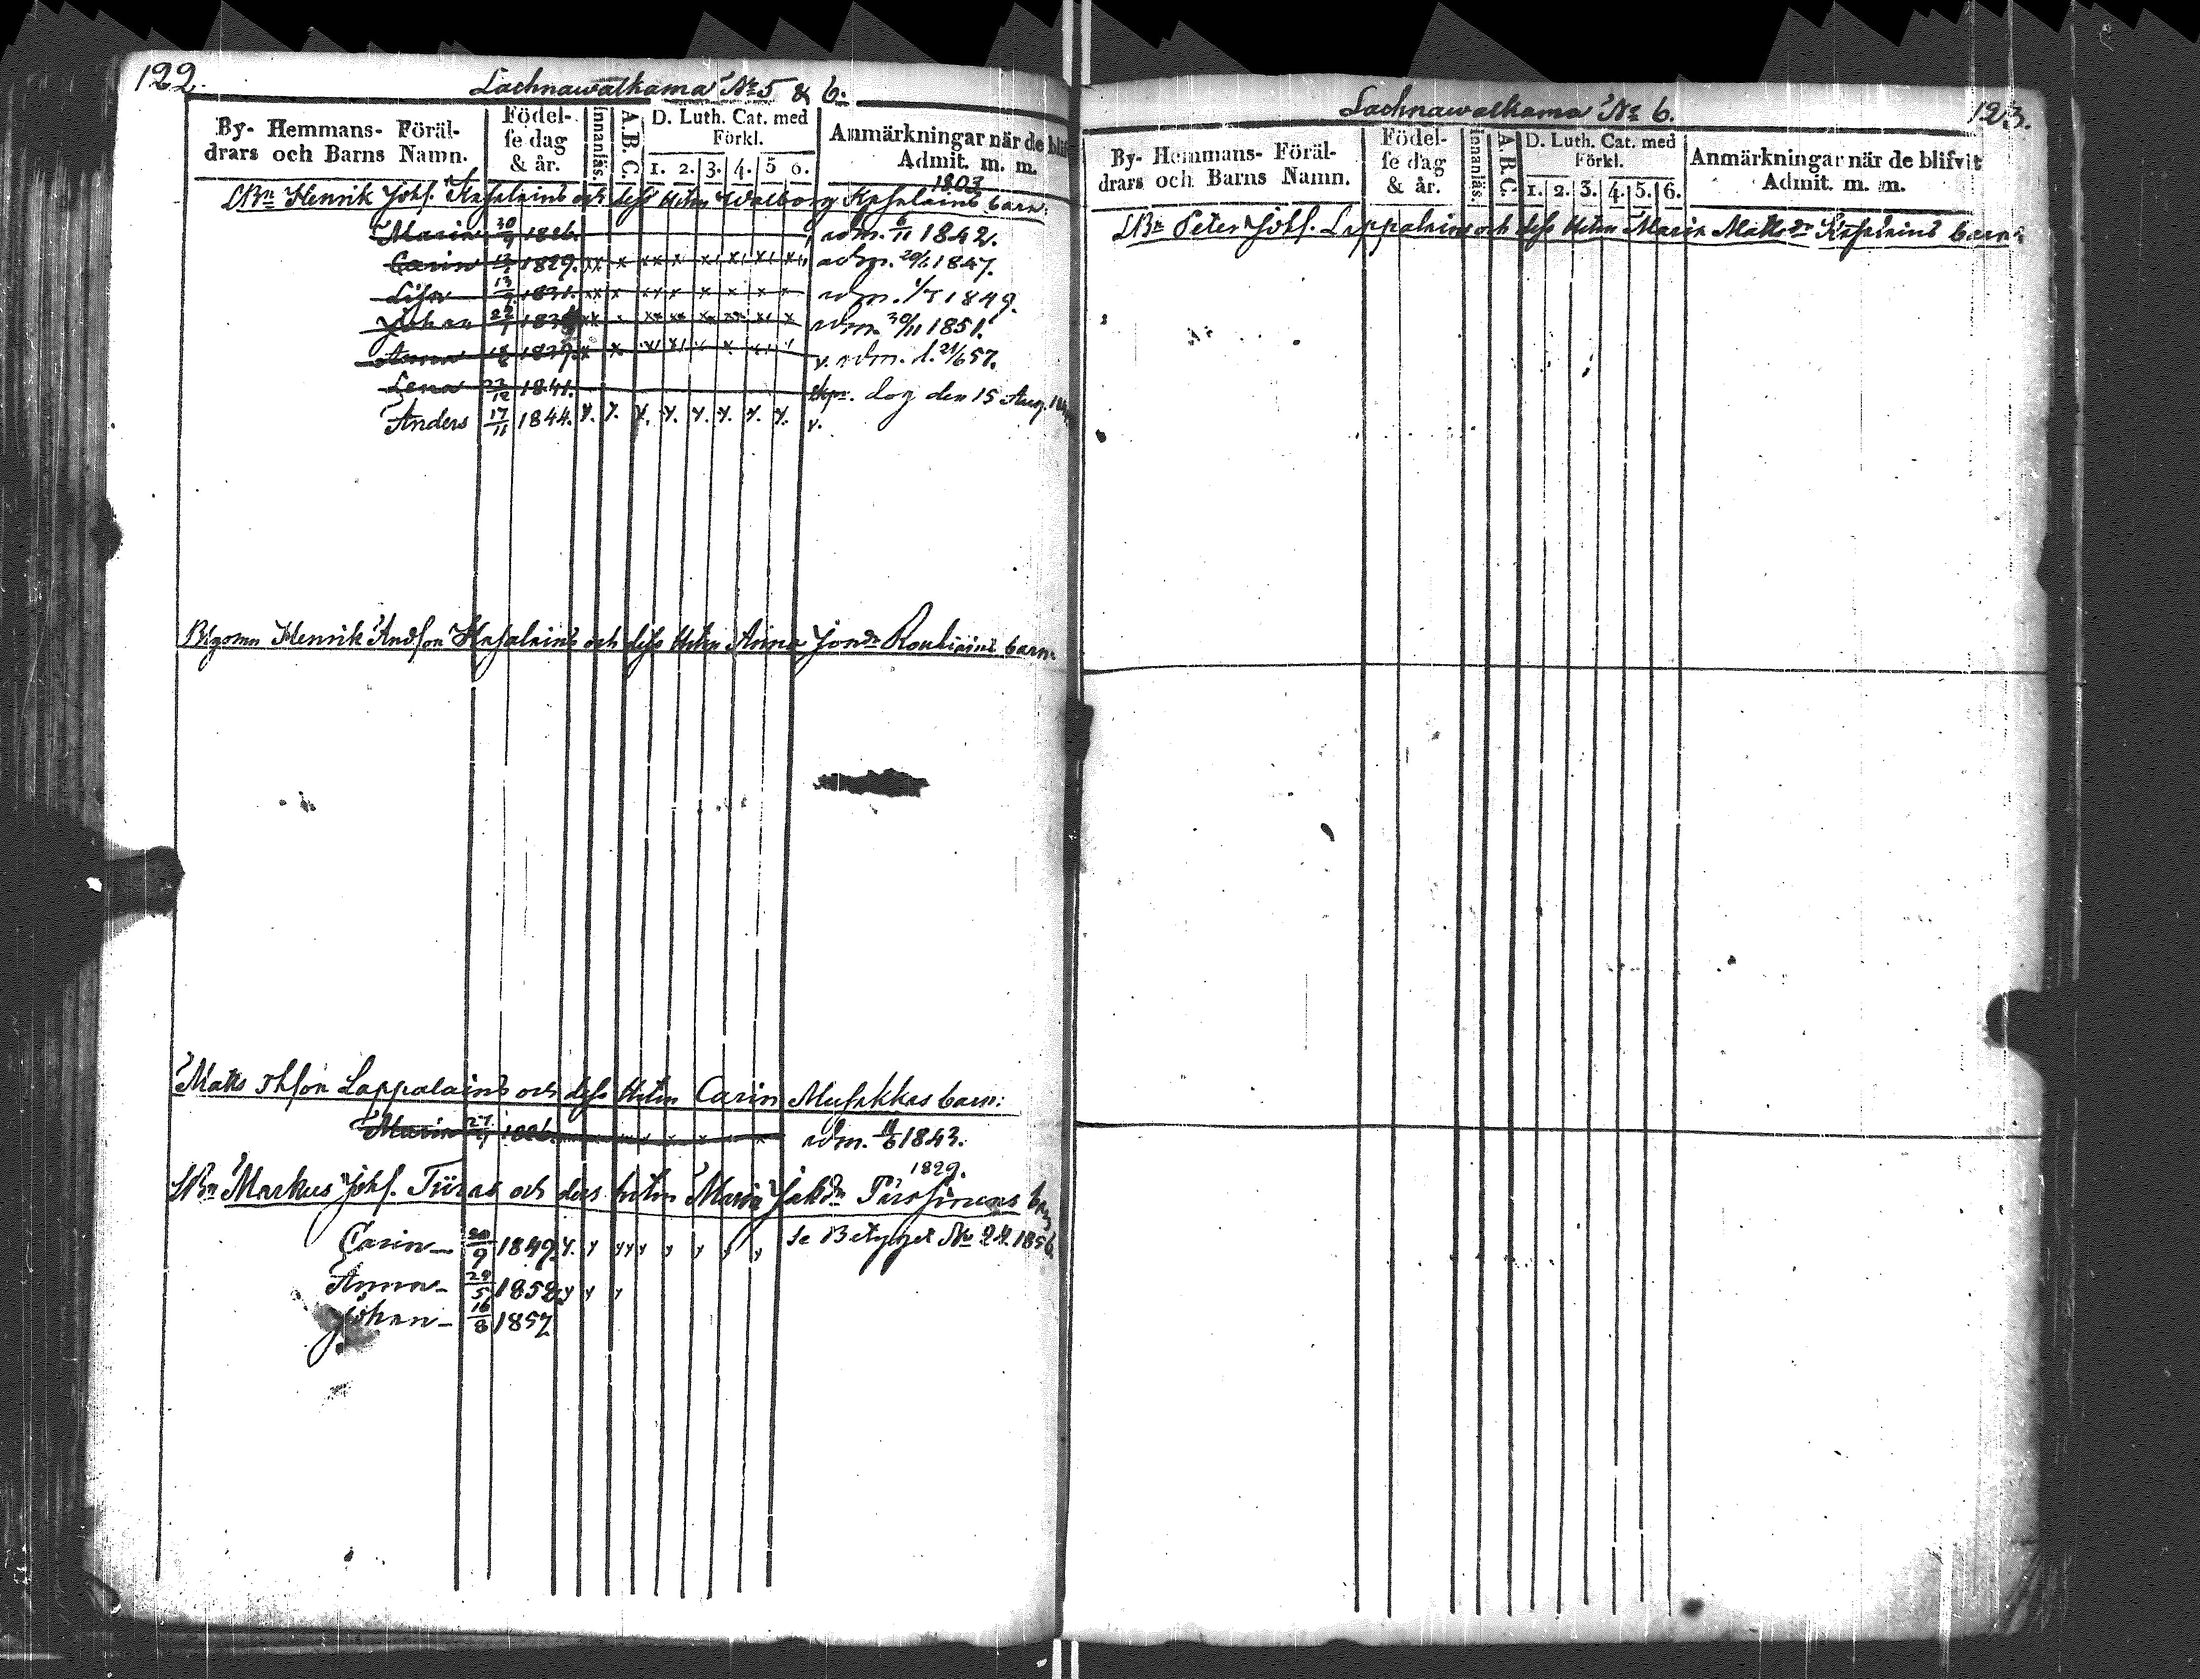 122.
Lachnawalkama No 5 & 6.
By- Hemmans- Föräl-
drars och Barns Namn.
Födel-
se dag
& år.
Innanläs.
A. B. C.
D. Luth. Cat. med
Förkl.
1. 2. 3. 4. 5 6.
Anmärkningar när de blif
Admit. m. m.
1803
Henrik Johs. och dess Hstru Walborg barn:
Maria 1826. adm. 6/11 1842.
Carin 1829. x x x x x x x x adm. 1847.
Lisa 13 1831. x x x x x x x x adm. 1849.
Johan x x x x x x x adm. 30/11 1851.
Anna 18 1839. x x x x x x x adm. d. 21/6 57.
Lena 23/12 1841. dog den 15 Aug.
Anders 17/11 1844. y. y. y. y. y. y. y. y. v.
Henrik Andson och dess Hstru Anna Jonsdr barn:
Matts Lappalains och dess Hstru Carin Musakkas barn:
Maria 27 1826. x x x adm. 1843.
1829.
Markus Johs. och dess hstru Maria Jakdr
Carin 20/9 1849. y. y y y y y y y y se Betyget No 22 1856.
Anna 29/5 1852 y y y
Johan 16/8 1857
Lachnawalkama No 6.
123.
By- Hemmans- Föräl-
drars och Barns Namn.
Födel-
se dag
& år.
Innanläs.
A. B. C.
D. Luth. Cat. med
Förkl.
1. 2. 3. 4. 5. 6.
Anmärkningar när de blifvit
Admit. m. m.
Peter Johs. Lappalains och dess Hstru Maria Mattsdr barn: